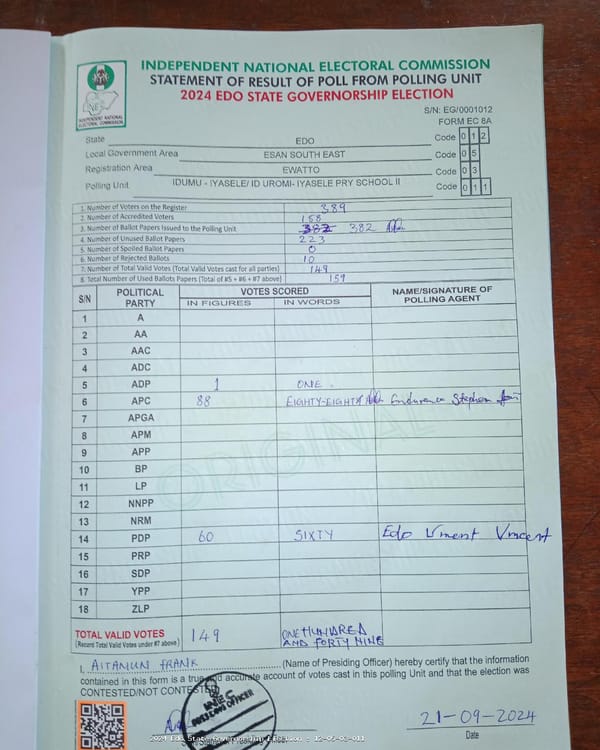 INDEPENDENT NATIONAL ELECTORAL COMMISSION
STATEMENT OF RESULT OF POLL FROM POLLING UNIT
2024 EDO STATE GOVERNORSHIP ELECTION
INDEPENDENT NATIONAL ELECTORAL COMMISSION
S/N: EG/0001012
FORM EC 8A
State EDO Code 0 1 2
Local Government Area ESAN SOUTH EAST Code 0 5
Registration Area EWATTO Code 0 3
Polling Unit IDUMU - IYASELE/ ID UROMI- IYASELE PRY SCHOOL II Code 0 1 1
1. Number of Voters on the Register 389
2. Number of Accredited Voters 158
3. Number of Ballot Papers Issued to the Polling Unit 382 382
4. Number of Unused Ballot Papers 223
5. Number of Spoiled Ballot Papers 0
6. Number of Rejected Ballots 10
7. Number of Total Valid Votes (Total Valid Votes cast for all parties) 149
8. Total Number of Used Ballots Papers (Total of #5 + #6 + #7 above) 159
S/N POLITICAL PARTY VOTES SCORED NAME/SIGNATURE OF POLLING AGENT
IN FIGURES IN WORDS
1 A
2 AA
3 AAC
4 ADC
5 ADP 1 ONE
6 APC 88 EIGHTY-EIGHT Endurance Stephen
7 APGA
8 APM
9 APP
10 BP
11 LP
12 NNPP
13 NRM
14 PDP 60 SIXTY Edo Vincent Vincent
15 PRP
16 SDP
17 YPP
18 ZLP
ORIGINAL
TOTAL VALID VOTES 149 ONE HUNDRED AND FORTY NINE
(Record Total Valid Votes under #7 above)
I, AITAMUN FRANK (Name of Presiding Officer) hereby certify that the information
contained in this form is a true and accurate account of votes cast in this Polling Unit and that the election was
CONTESTED/NOT CONTESTED
INEC
PRESIDING OFFICER
21-09-2024
Date
2024 Edo State Governorship Election - 12-05-03-011